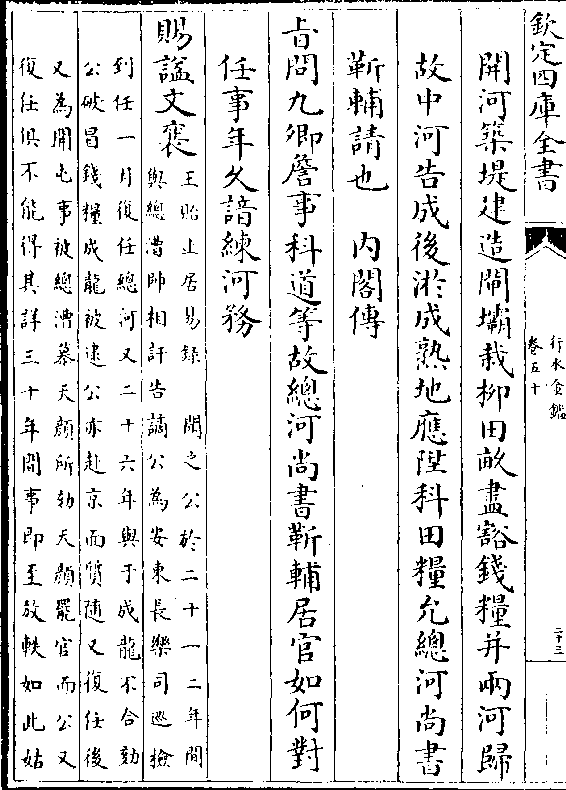 欽定四庫全書
行水金鑑
卷五十
二十三
開河築堤建造閘壩栽柳田畝盡豁錢糧并兩河歸
故中河告成後淤成熟地應陞科田糧允總河尚書
靳輔請也　内閣傳
㫖問九卿詹事科道等故總河尚書靳輔居官如何對
任事年久諳練河務
賜諡文襄
王貽上居易錄　聞之公於二十一二年間
與總漕帥相訐告謫公為安東長樂司巡檢
到任一月復任總河又二十六年與于成龍不合劾
公破冒錢糧成龍被逮公亦赴京面質隨又復任後
又為開屯事被總漕慕天顔所劾天顔罷官而公又
復任俱不能得其詳三十年間事即至放軼如此姑